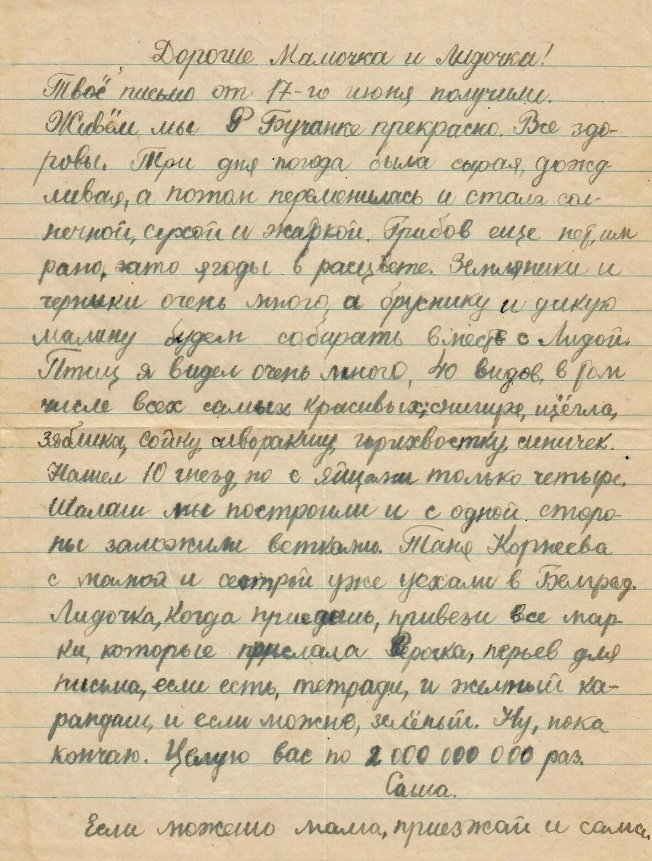 Дорогие Мамочка и Лидочка!
Твоё письмо от 17-го июня получили.
Живём мы в Бучанке прекрасно. Все здо-
ровы. Три дня погода была сырая, дожд-
ливая, а потом переменилась и стала сол-
нечной, сухой и жаркой. Грибов еще нет, им
рано, зато ягоды в расцвете. Земляники и
черники очень много, а бруснику и дикую
малину будем собарать вместе с Лидой.
Птиц я видел очень много, 40 видов, в том
числе всех самых красивых: снигиря, щёгла,
зяблика, сойку, сиворакшу, горихвостку, синичек.
Нашел 10 гнезд, но с яйцами только четыре.
Шалаш мы построили и с одной сторо-
ны заложили ветками. Таня Корнеева
с мамой и сестрой уже уехали в Белград.
Лидочка, когда приедешь, привези все мар-
ки, которые прислала Верочка, перьев для
письма, если есть, тетради, и желтый ка-
рандаш, и если можно, зелёный. Ну, пока
кончаю. Целую вас по 2 000 000 000 раз.
Саша.
Если можешь мама, приезжай и сама.